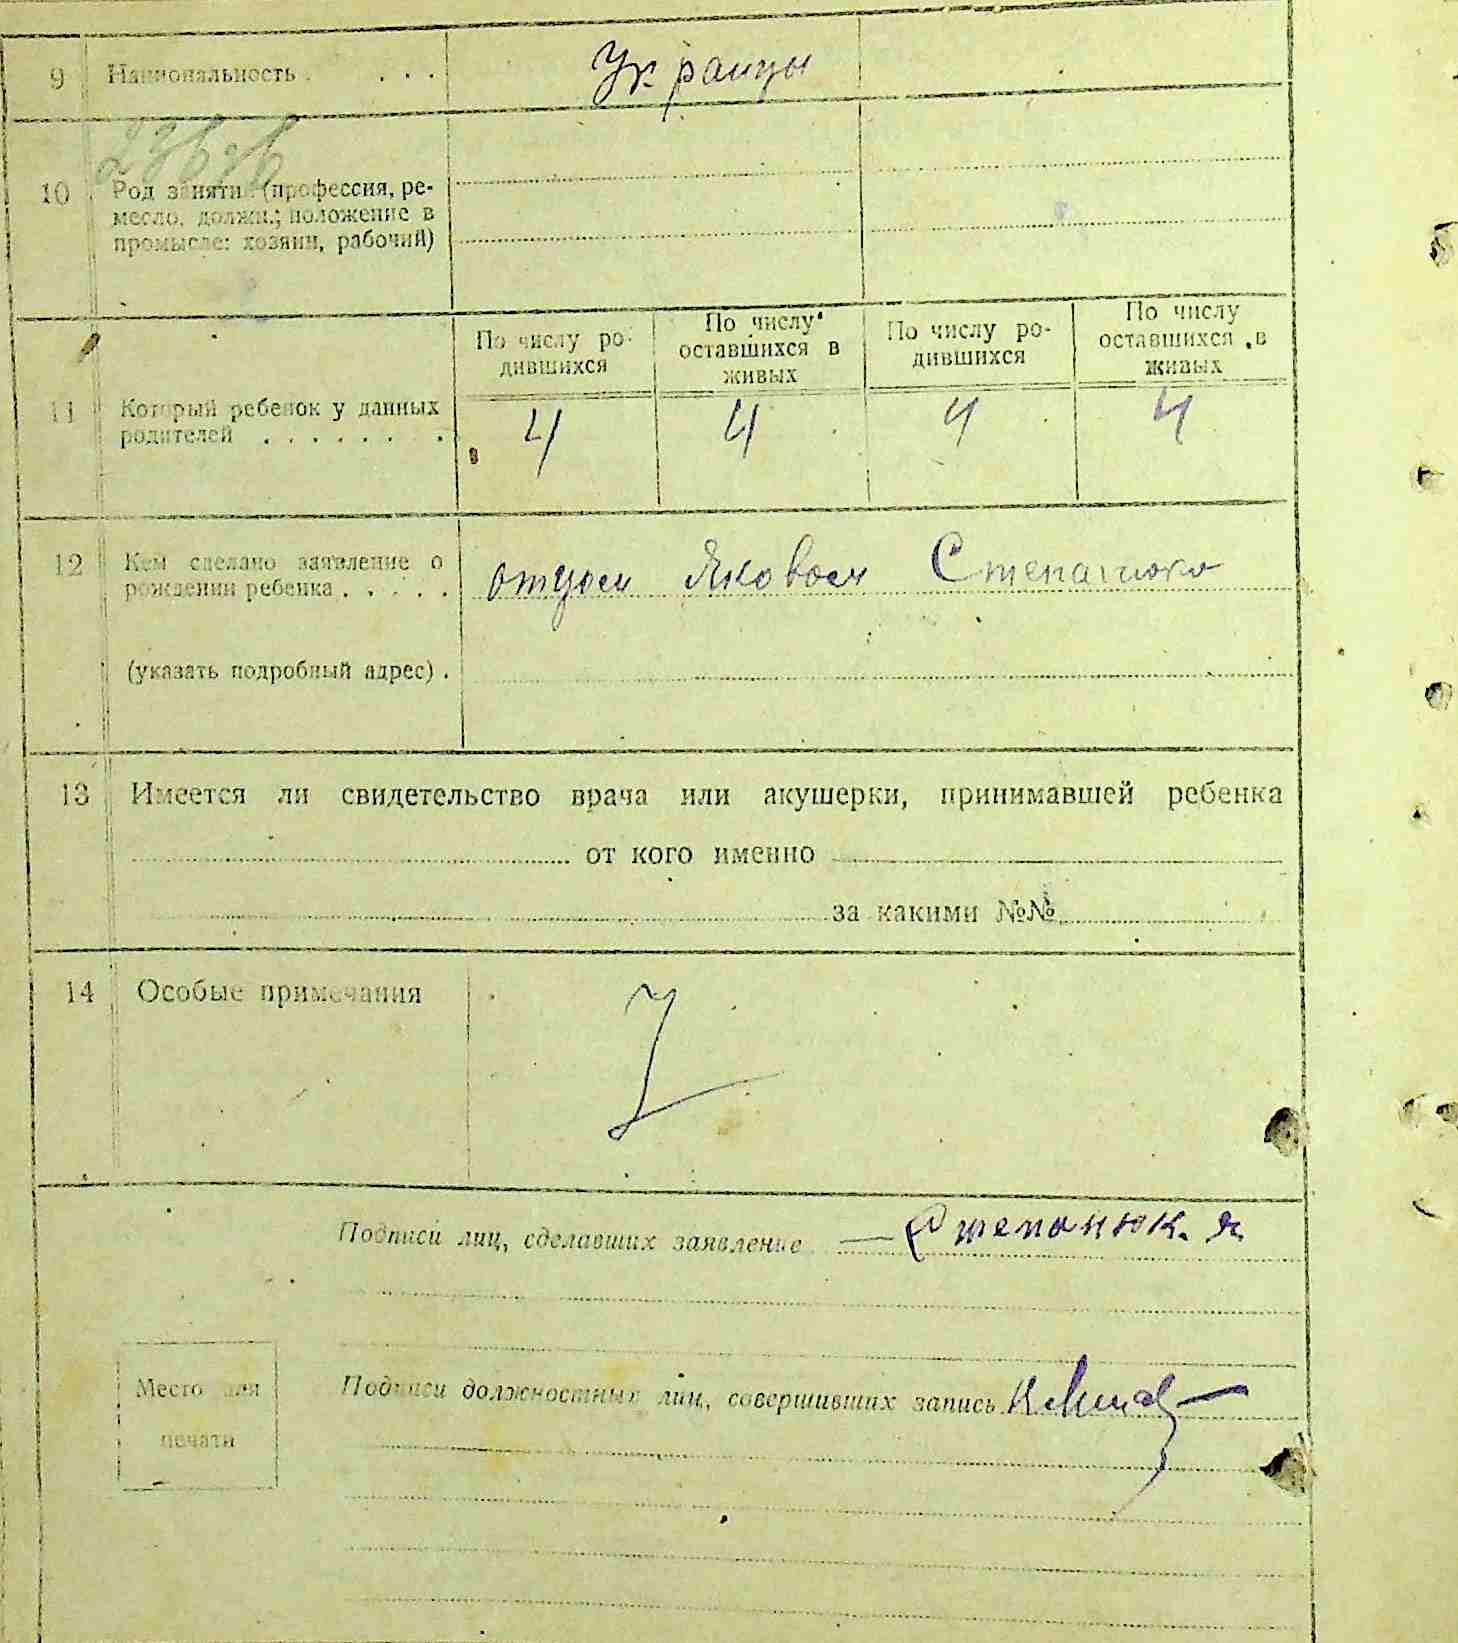 9 Национальность . . . . Украинцы
10 Род занятий (профессия, ре-
месло, должн.; положение в
промысле: хозяин, рабочий)
По числу ро-
дившихся
По числу
оставшихся в
живых
По числу ро-
дившихся
По числу
оставшихся в
живых
11 Который ребенок у данных
родителей . . . . . . . . 4 4 4 4
12 Кем сделано заявление о
рождении ребенка . . . . . отцом Яковом Степанюком
(указать подробный адрес) .
13 Имеется ли свидетельство врача или акушерки, принимавшей ребенка
от кого именно
за какими №№
14 Особые примечания
Подписи лиц, сделавших заявление — Степанюк. Я.
Место для
печати
Подписи должностных лиц, совершивших запись